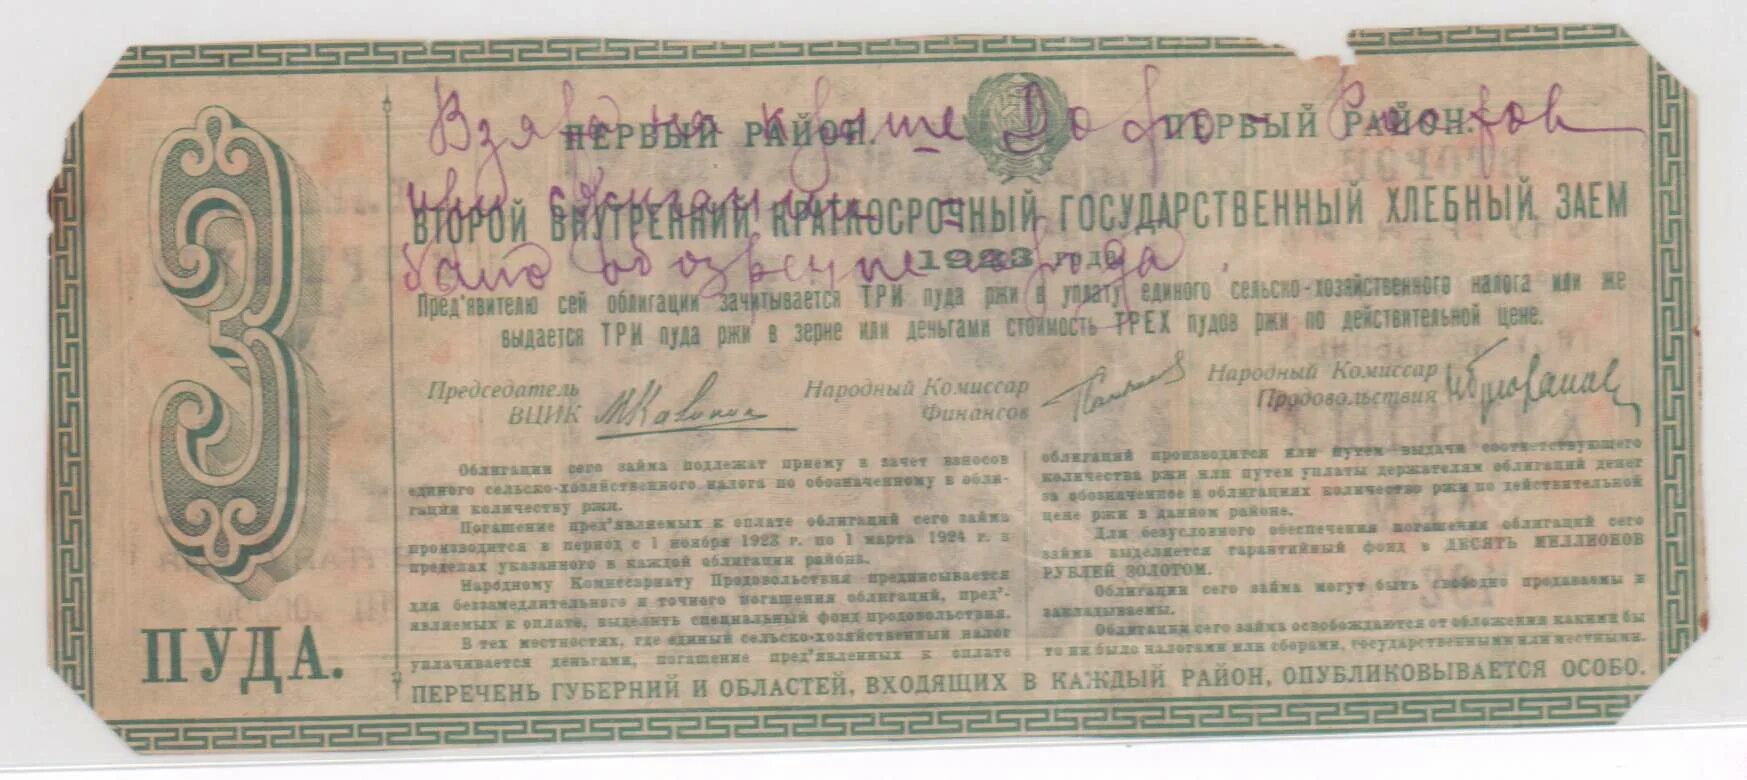 ПЕРВЫЙ РАЙОН. ПЕРВЫЙ РАЙОН.
ВТОРОЙ ВНУТРЕННИЙ КРАТКОСРОЧНЫЙ ГОСУДАРСТВЕННЫЙ ХЛЕБНЫЙ ЗАЕМ
1923 года.
Пред'явителю сей облигации зачитывается ТРИ пуда ржи в уплату единого сельско-хозяйственного налога или же
выдается ТРИ пуда ржи в зерне или деньгами стоимость ТРЕХ пудов ржи по действительной цене.
Председатель
ВЦИК
Народный Комиссар
Финансов
Народный Комиссар
Продовольствия
Облигации сего займа подлежат приему в зачет взносов
единого сельско-хозяйственного налога по обозначенному в обли-
гации количеству ржи.
Погашение пред'являемых к оплате облигаций сего займа
производится в период с 1 ноября 1923 г. по 1 марта 1924 г. в
пределах указанного в каждой облигации района.
Народному Комиссариату Продовольствия предписывается
для беззамедлительного и точного погашения облигаций, пред'-
являемых к оплате, выделить специальный фонд продовольствия.
В тех местностях, где единый сельско-хозяйственный налог
уплачивается деньгами, погашение пред'явленных к оплате
облигаций производится или путем выдачи соответствующего
количества ржи или путем уплаты держателям облигаций денег
за обозначенное в облигациях количество ржи по действительной
цене ржи в данном районе.
Для безусловного обеспечения погашения облигаций сего
займа выделяется гарантийный фонд в ДЕСЯТЬ МИЛЛИОНОВ
РУБЛЕЙ ЗОЛОТОМ.
Облигации сего займа могут быть свободно продаваемы и
закладываемы.
Облигации сего займа освобождаются от обложения какими бы
то ни было налогами или сборами, государственными или местными.
ПЕРЕЧЕНЬ ГУБЕРНИЙ И ОБЛАСТЕЙ, ВХОДЯЩИХ В КАЖДЫЙ РАЙОН, ОПУБЛИКОВЫВАЕТСЯ ОСОБО.
3
ПУДА.